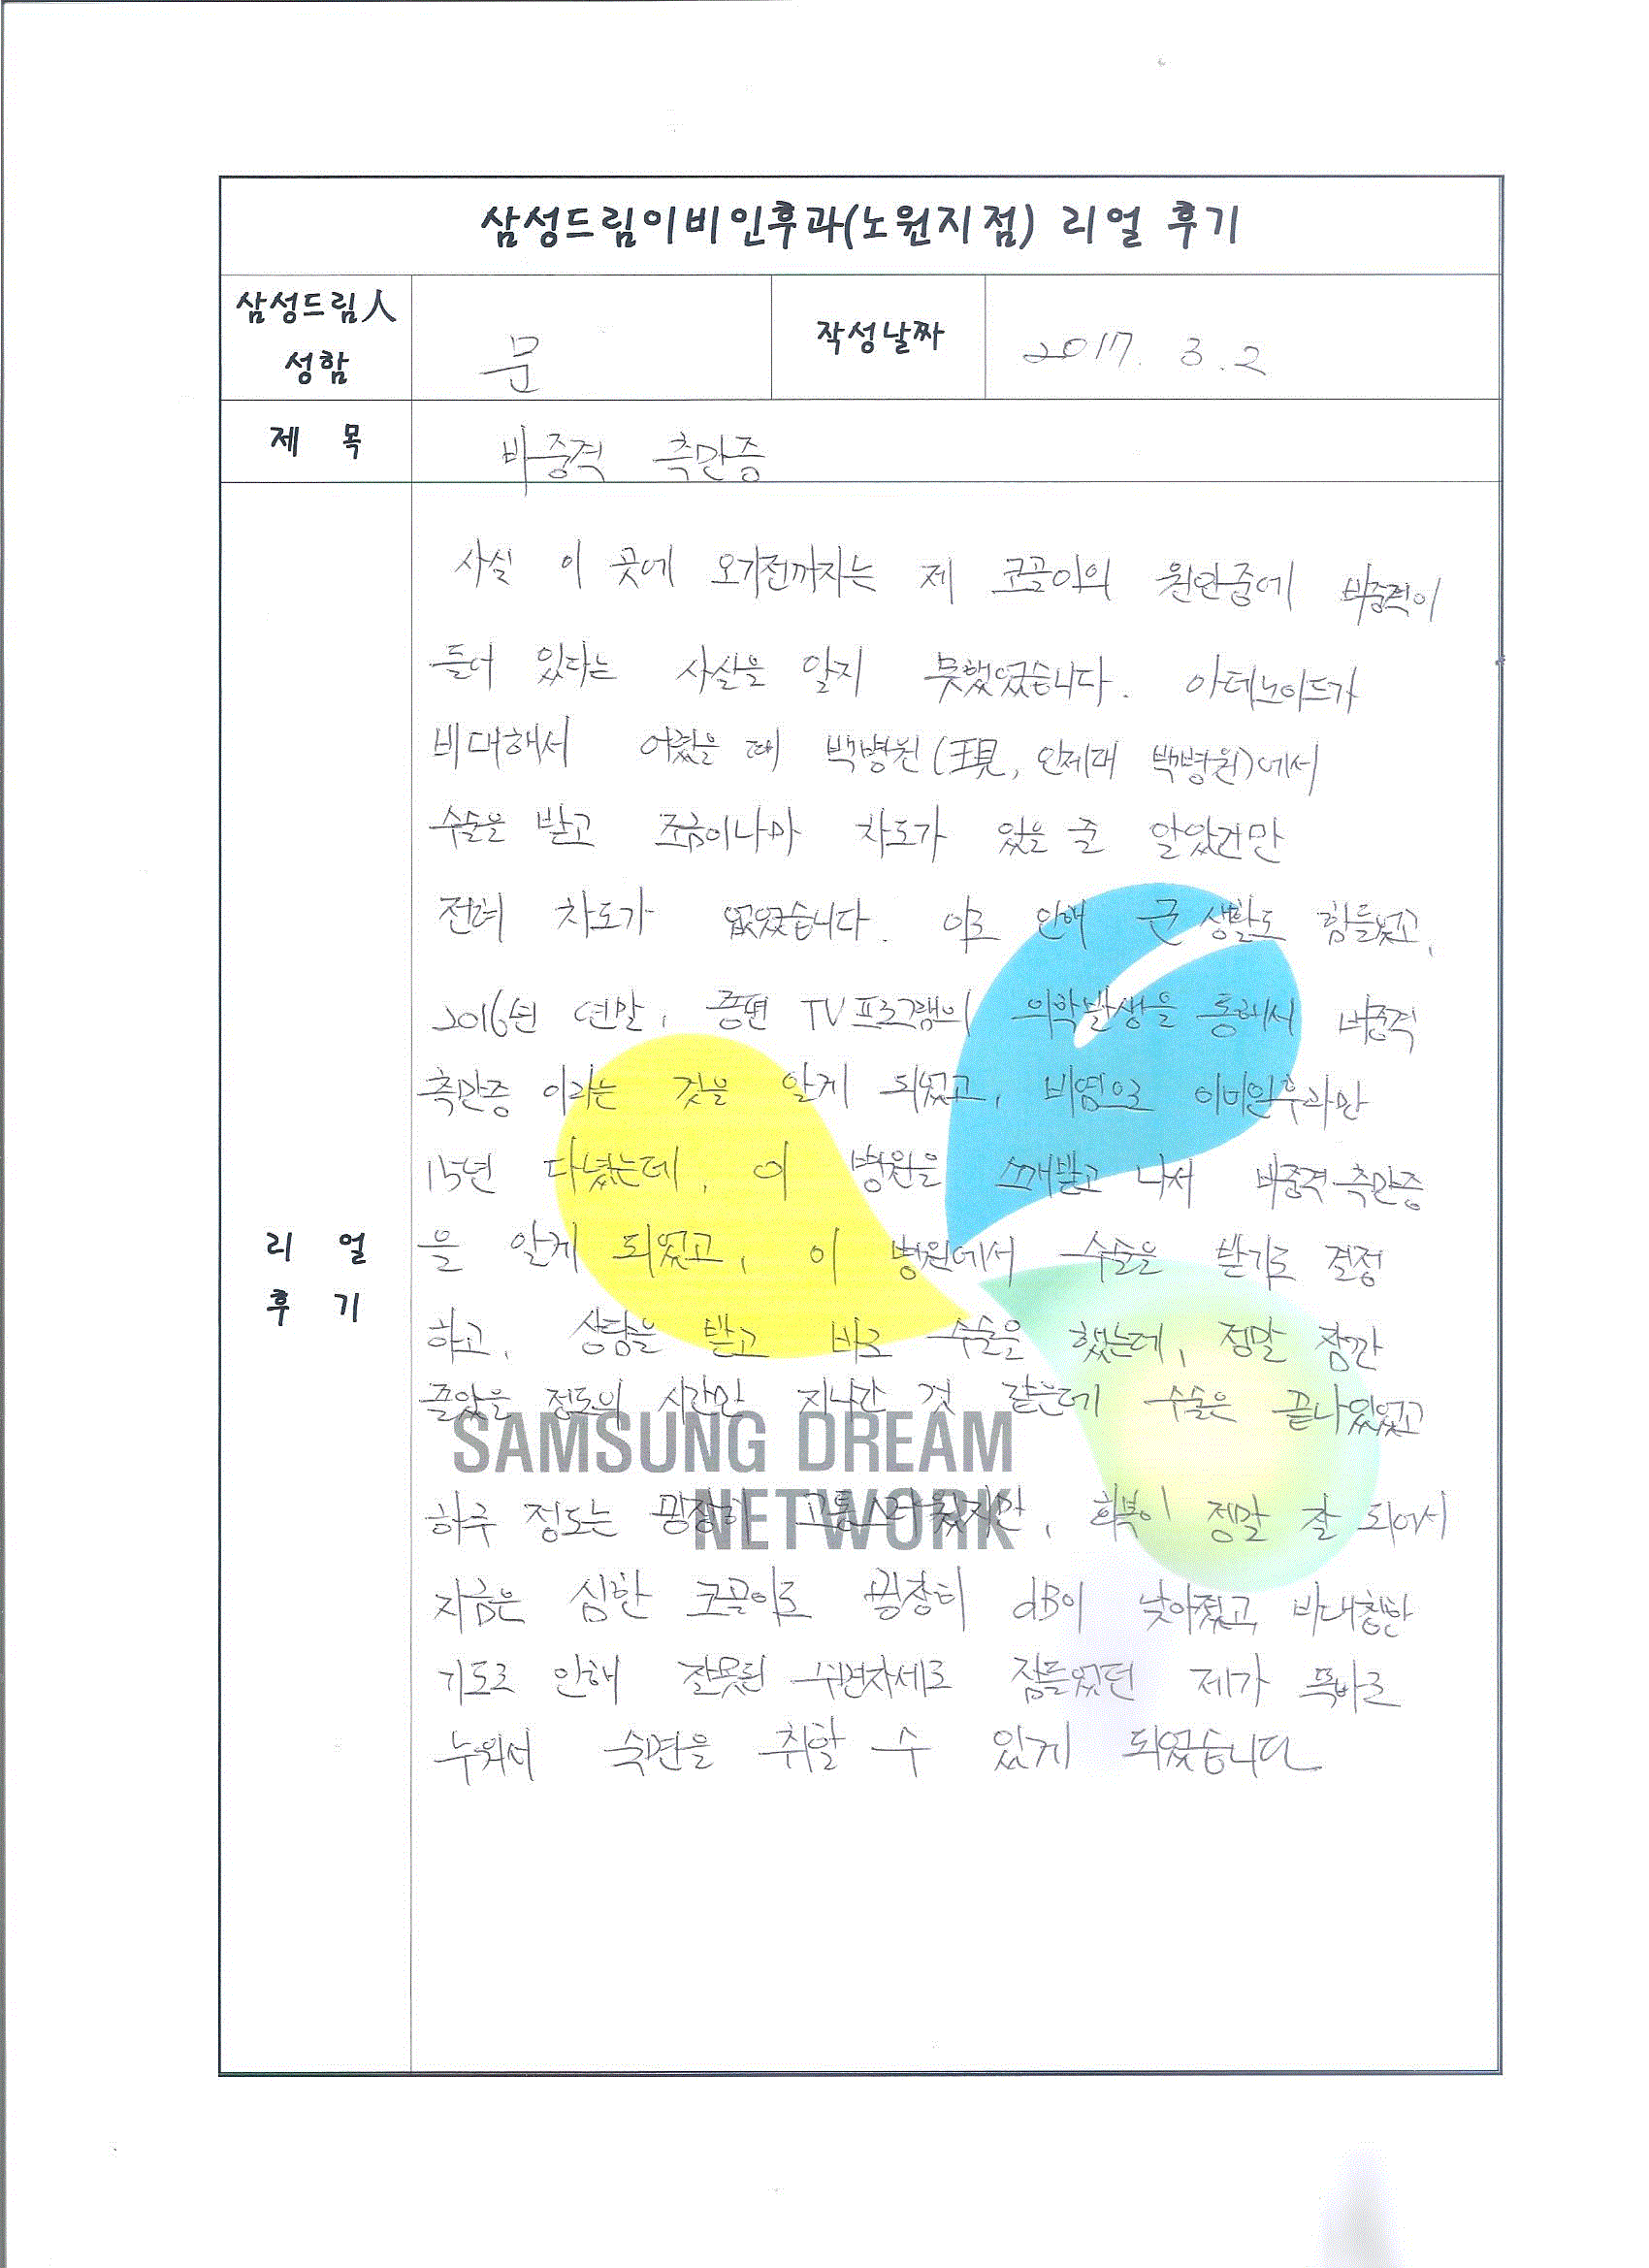 삼성드림이비인후과(노원지점) 리얼 후기
삼성드림人
성함
문
작성날짜
2017. 3. 2
제 목
비중격 측만증
사실 이 곳에 오기전까지는 제 코골이의 원인중에 비중격이
들어 있다는 사실을 알지 못했었습니다. 아데노이드가
비대해서 어렸을 때 백병원(現, 인제대 백병원)에서
수술을 받고 조금이나마 차도가 있을 줄 알았건만
전혀 차도가 없었습니다. 이로 인해 군 생활도 힘들었고,
2016년 연말, 종편 TV프로그램의 의학발생을 통해서 비중격
측만증 이라는 것을 알게 되었고, 비염으로 이비인후과만
15년 다녔는데, 이 병원을 소개받고 나서 비중격측만증
을 알게 되었고, 이 병원에서 수술을 받기로 결정
하고, 상담을 받고 바로 수술을 했는데, 정말 잠깐
졸았을 정도의 시간만 지나간 것 같은데 수술은 끝나있었고
하루 정도는 굉장히 고통스러웠지만, 회복이 정말 잘 되어서
지금은 심한 코골이도 굉장히 dB이 낮아졌고 비대칭한
기도로 인해 잘못된 수면자세로 잠들었던 제가 똑바로
누워서 숙면을 취할 수 있게 되었습니다
리 얼
후 기
SAMSUNG DREAM
NETWORK